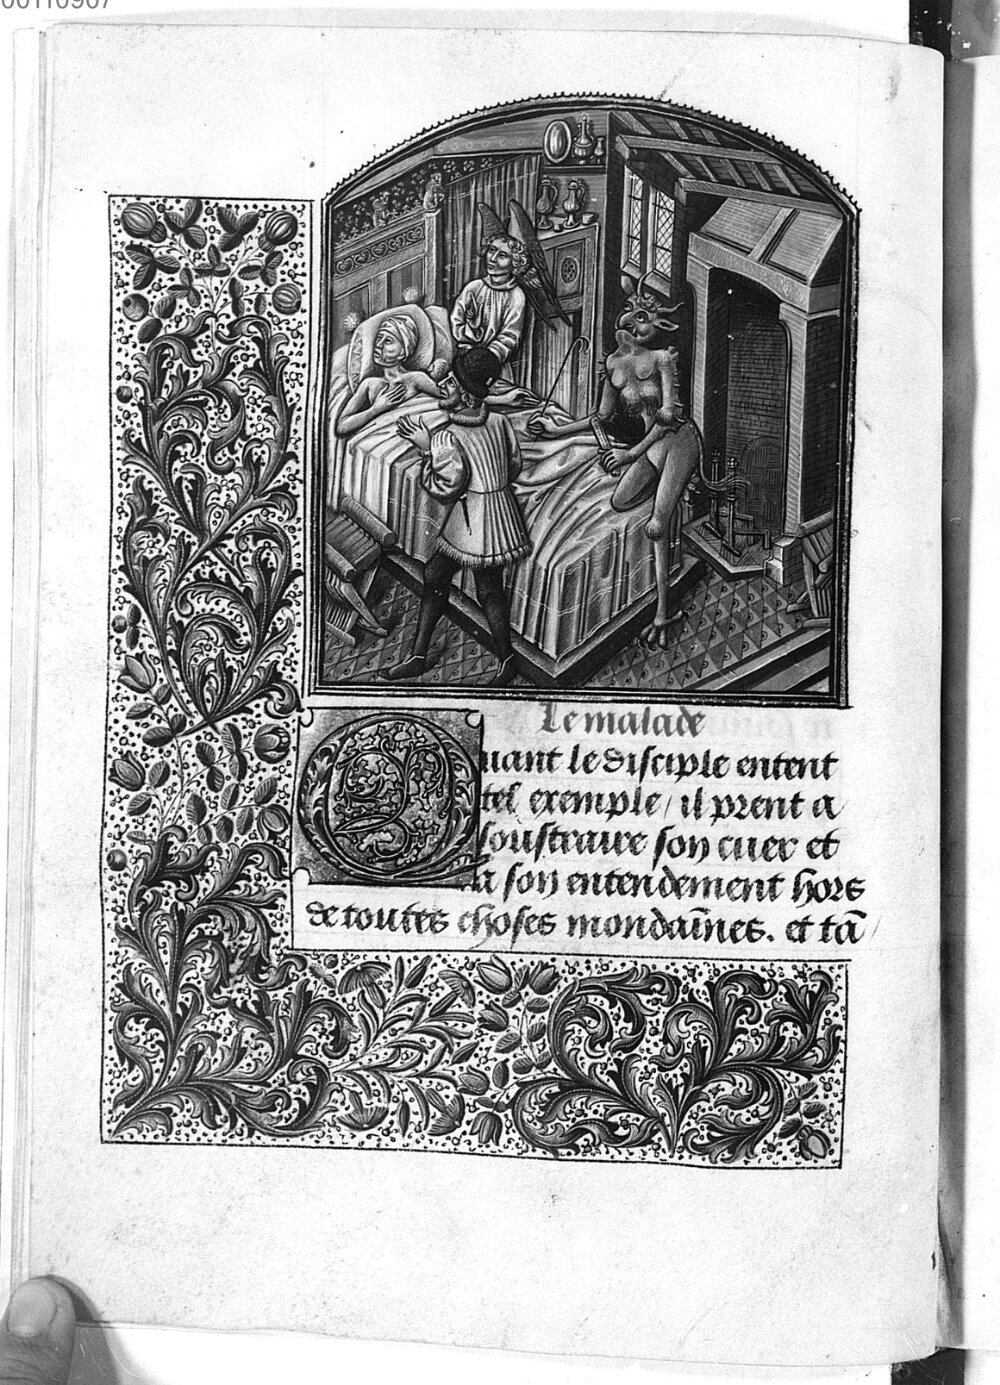 00110907
Le malade
Quant le disciple entent
tel exemple / il prent a
soustraire son cuer et
a son entendement hors
de toutes choses mondaīnes. et tā /